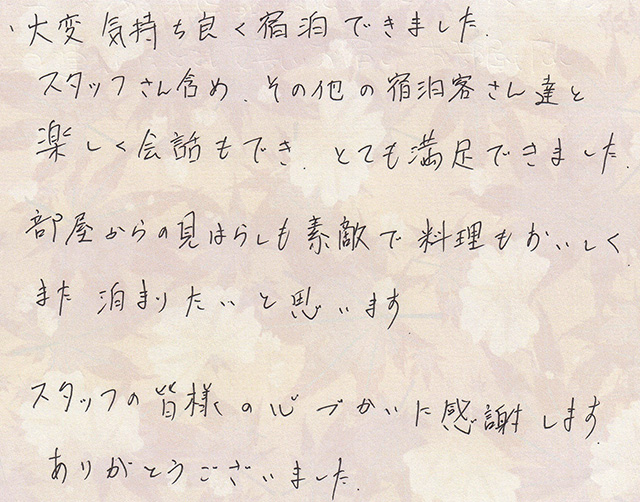 大変気持ち良く宿泊できました.
スタッフさん含め、その他の宿泊客さん達と
楽しく会話もでき、とても満足できました.
部屋からの見はらしも素敵で料理もおいしく
また泊まりたいと思います
スタッフの皆様の心づかいに感謝します.
ありがとうございました.